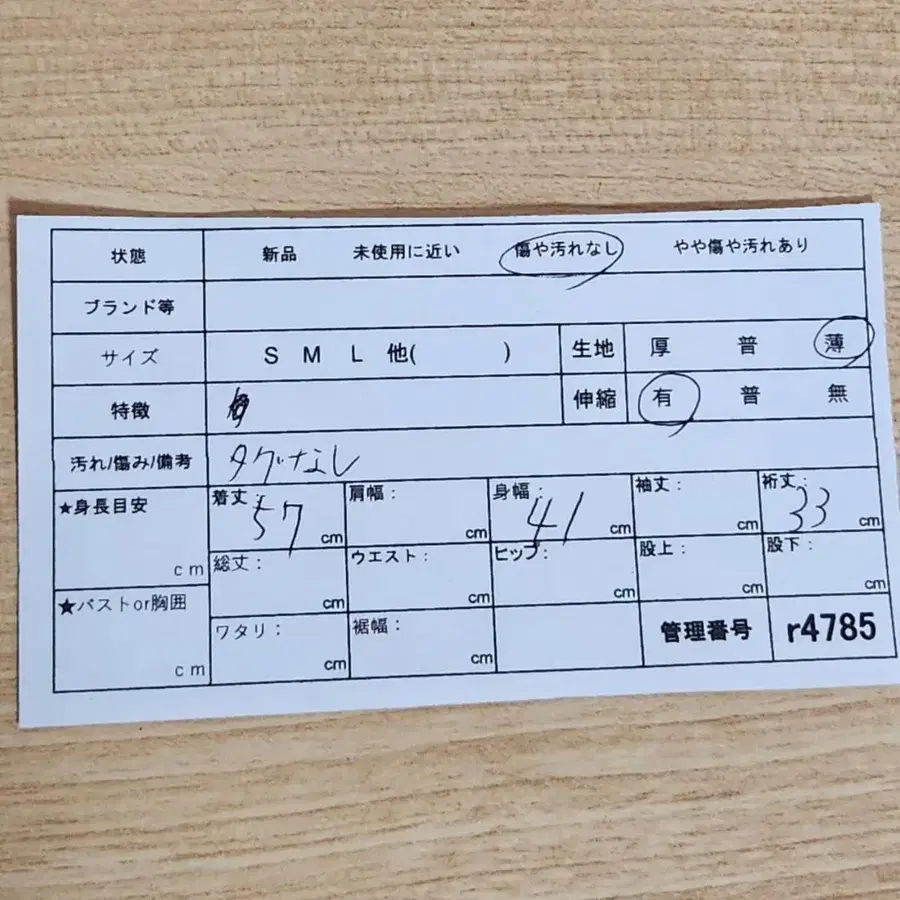 状態 新品 未使用に近い 傷や汚れなし やや傷や汚れあり
ブランド等
サイズ S M L 他( ) 生地 厚 普 薄
特徴 伸縮 有 普 無
汚れ/傷み/備考 タグなし
★身長目安 cm 着丈: 57 cm 肩幅: cm 身幅: 41 cm 袖丈: cm 裄丈: 33 cm
総丈: cm ウエスト: cm ヒップ: cm 股上: cm 股下: cm
★バストor胸囲 cm ワタリ: cm 裾幅: cm 管理番号 r4785